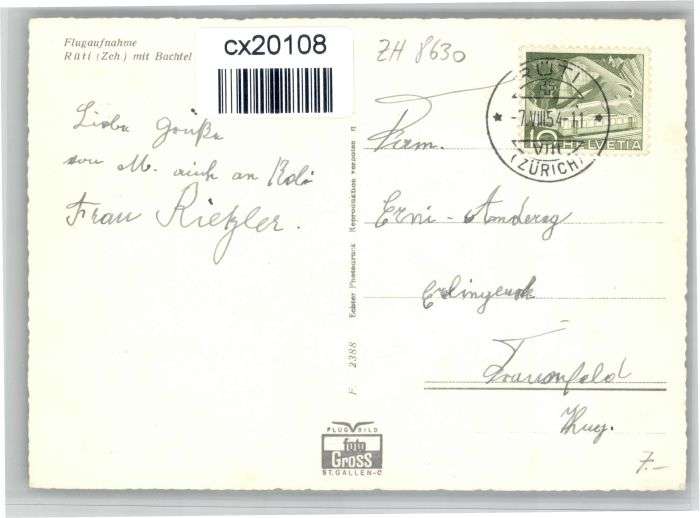 Flugaufnahme
Rüti (Zch.) mit Bachtel
cx20108
ZH 8630
RÜTI
-7.VIII.54-11
VIII
(ZÜRICH)
10 HELVETIA
Liebe Grüße
von M. auch an Rolf
Frau Rietzler.
Fam.
Erni-Anderegg
Erlingerstr
Frauenfeld
Thug.
7.-
F 2388 Echter Photogruss Reproduktion verboten
FLUG BILD
foto
Gross
ST. GALLEN-C